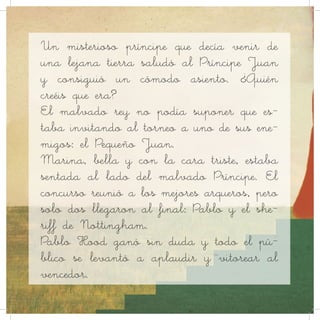 Un misterioso príncipe que decía venir de
una lejana tierra saludó al Príncipe Juan
y consiguió un cómodo asiento. ¿Quién
creéis que era?
El malvado rey no podía suponer que es-
taba invitando al torneo a uno de sus ene-
migos: el Pequeño Juan.
Marina, bella y con la cara triste, estaba
sentada al lado del malvado Príncipe. El
concurso reunió a los mejores arqueros, pero
solo dos llegaron al final: Pablo y el she-
riff de Nottingham.
Pablo Hood ganó sin duda y todo el pú-
blico se levantó a aplaudir y vitorear al
vencedor.